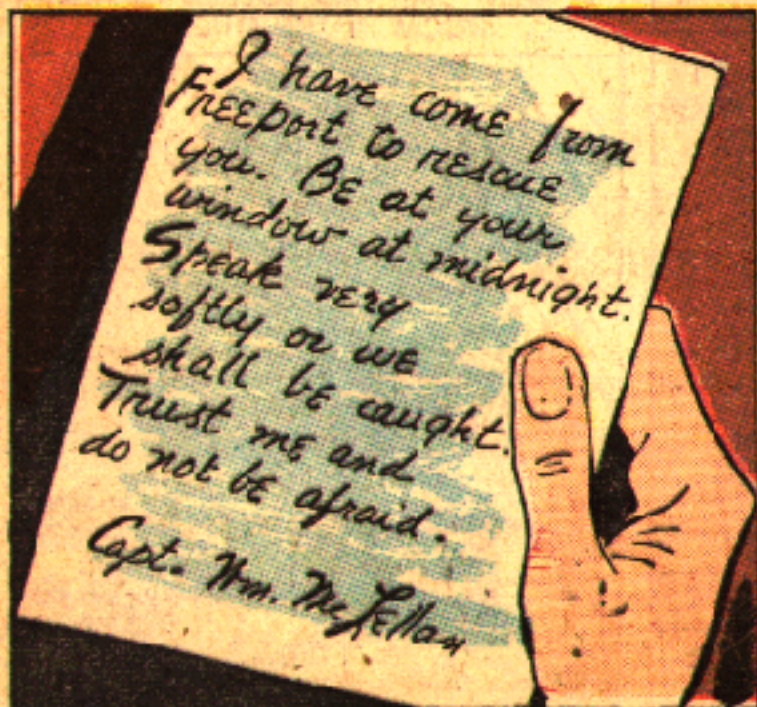 I have come from
Freeport to rescue
you. Be at your
window at midnight.
Speak very
softly or we
shall be caught.
Trust me and
do not be afraid.
Capt. Wm. McLellan